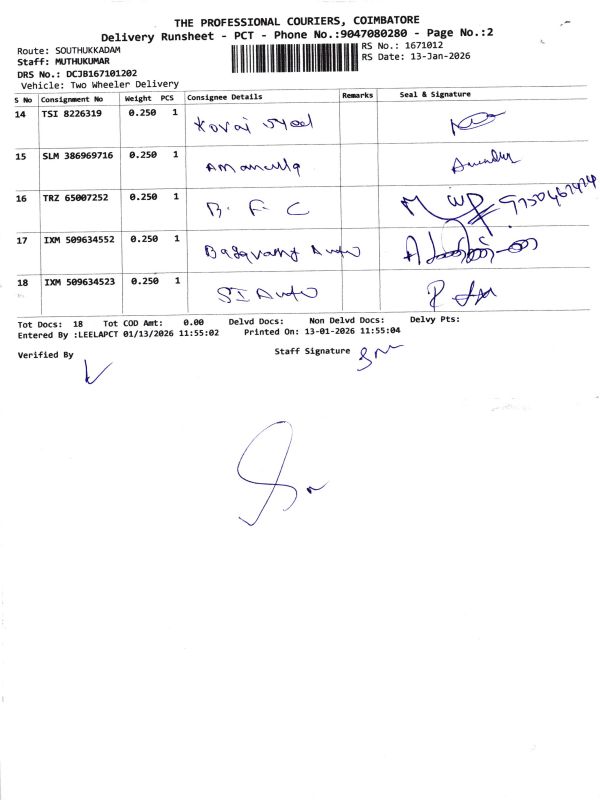 THE PROFESSIONAL COURIERS, COIMBATORE
Delivery Runsheet - PCT - Phone No.:9047080280 - Page No.:2
Route: SOUTHUKKADAM
RS No.: 1671012
Staff: MUTHUKUMAR
RS Date: 13-Jan-2026
DRS No.: DCJB167101202
Vehicle: Two Wheeler Delivery
S No Consignment No Weight PCS Consignee Details Remarks Seal & Signature
14 TSI 8226319 0.250 1 Kovai
15 SLM 386969716 0.250 1
16 TRZ 65007252 0.250 1 B. F. C
17 IXM 509634552 0.250 1 Auto
18 IXM 509634523 0.250 1 SI Auto
Tot Docs: 18 Tot COD Amt: 0.00 Delvd Docs: Non Delvd Docs: Delvy Pts:
Entered By :LEELAPCT 01/13/2026 11:55:02 Printed On: 13-01-2026 11:55:04
Verified By
Staff Signature